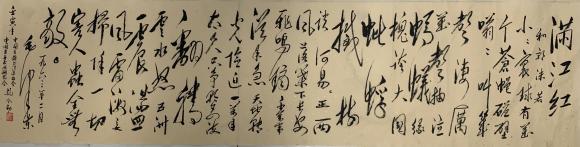 满江红
和郭沫若
小小寰球有万
个苍蝇碰壁
嗡嗡叫几
声凄厉
几声抽泣
蚂蚁缘
槐夸大国
蚍蜉
撼树
谈何易正西
风落叶下长安
飞鸣镝多少事
从来急天地转
光阴迫一万年
太久只争朝夕
四海翻腾
云水怒五洲
震荡
风雷激
扫除一切
害人虫全无
敌
毛泽东
一九六三年一月
壬寅年